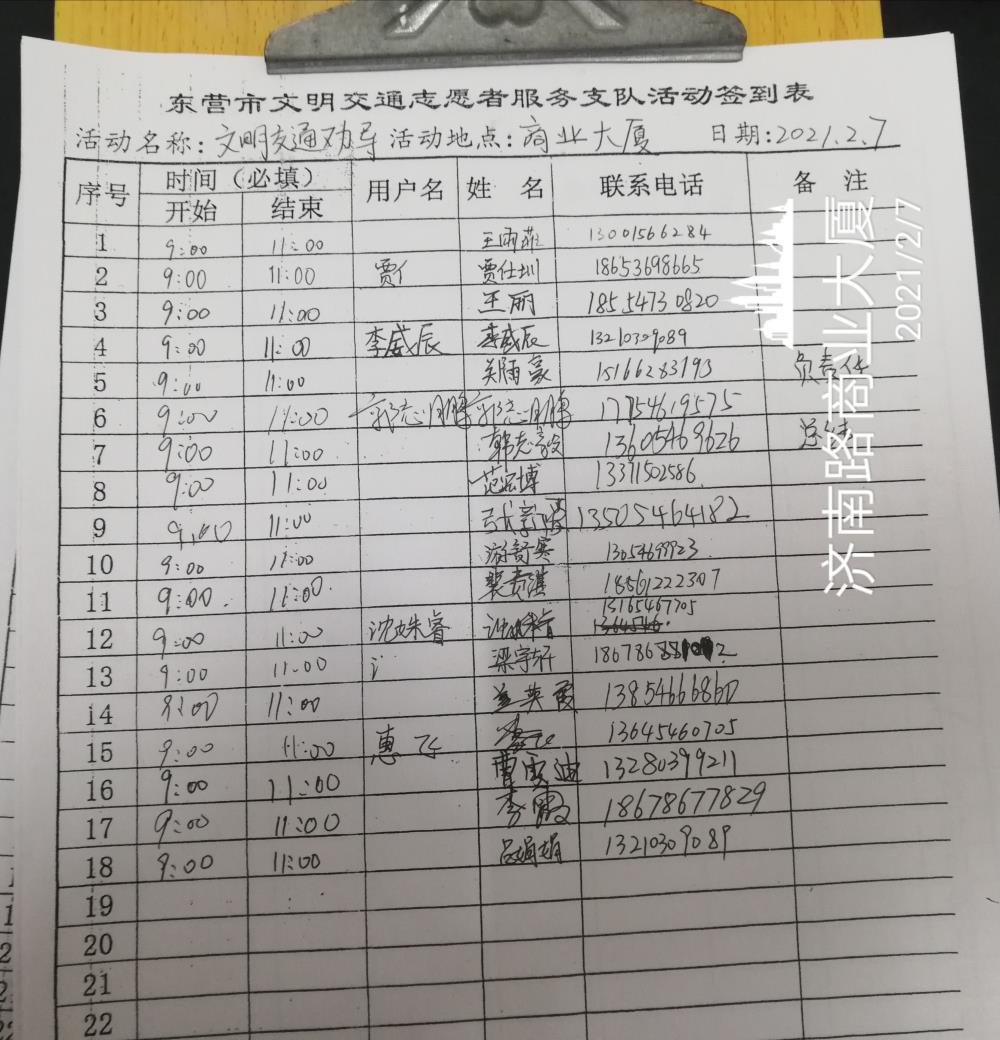 东营市文明交通志愿者服务支队活动签到表
活动名称:文明交通劝导 活动地点:商业大厦 日期:2021.2.7
序号 时间（必填） 用户名 姓 名 联系电话 备 注
开始 结束
1 9:00 11:00 王雨菲 13001566284
2 9:00 11:00 贾仕 贾仕圳 18653698665
3 9:00 11:00 王丽 18554730820
4 9:00 11:00 李威辰 李威辰 13210309089
5 9:00 11:00 关雨豪 15166283793 负责任
6 9:00 11:00 郭志鹏 郭志鹏 17754619575
7 9:00 11:00 韩志毅 13605469626
8 9:00 11:00 范宏博 13371502586
9 9:00 11:00 13505464182
10 9:00 11:00 13054699923
11 9:00. 11:00. 18561222307
12 9:00 11:00 沈姝睿 沈姝睿 15165467705
13 9:00 11:00 梁宇轩
14 9:00 11:00 13854666860
15 9:00 11:00 惠飞 13645460705
16 9:00 11:00 曹雯迪 13280399211
17 9:00 11:00 李霞 18678677829
18 9:00 11:00 吕娟娟 13210309089
19
20
21
22
济南路商业大厦
2021/2/7